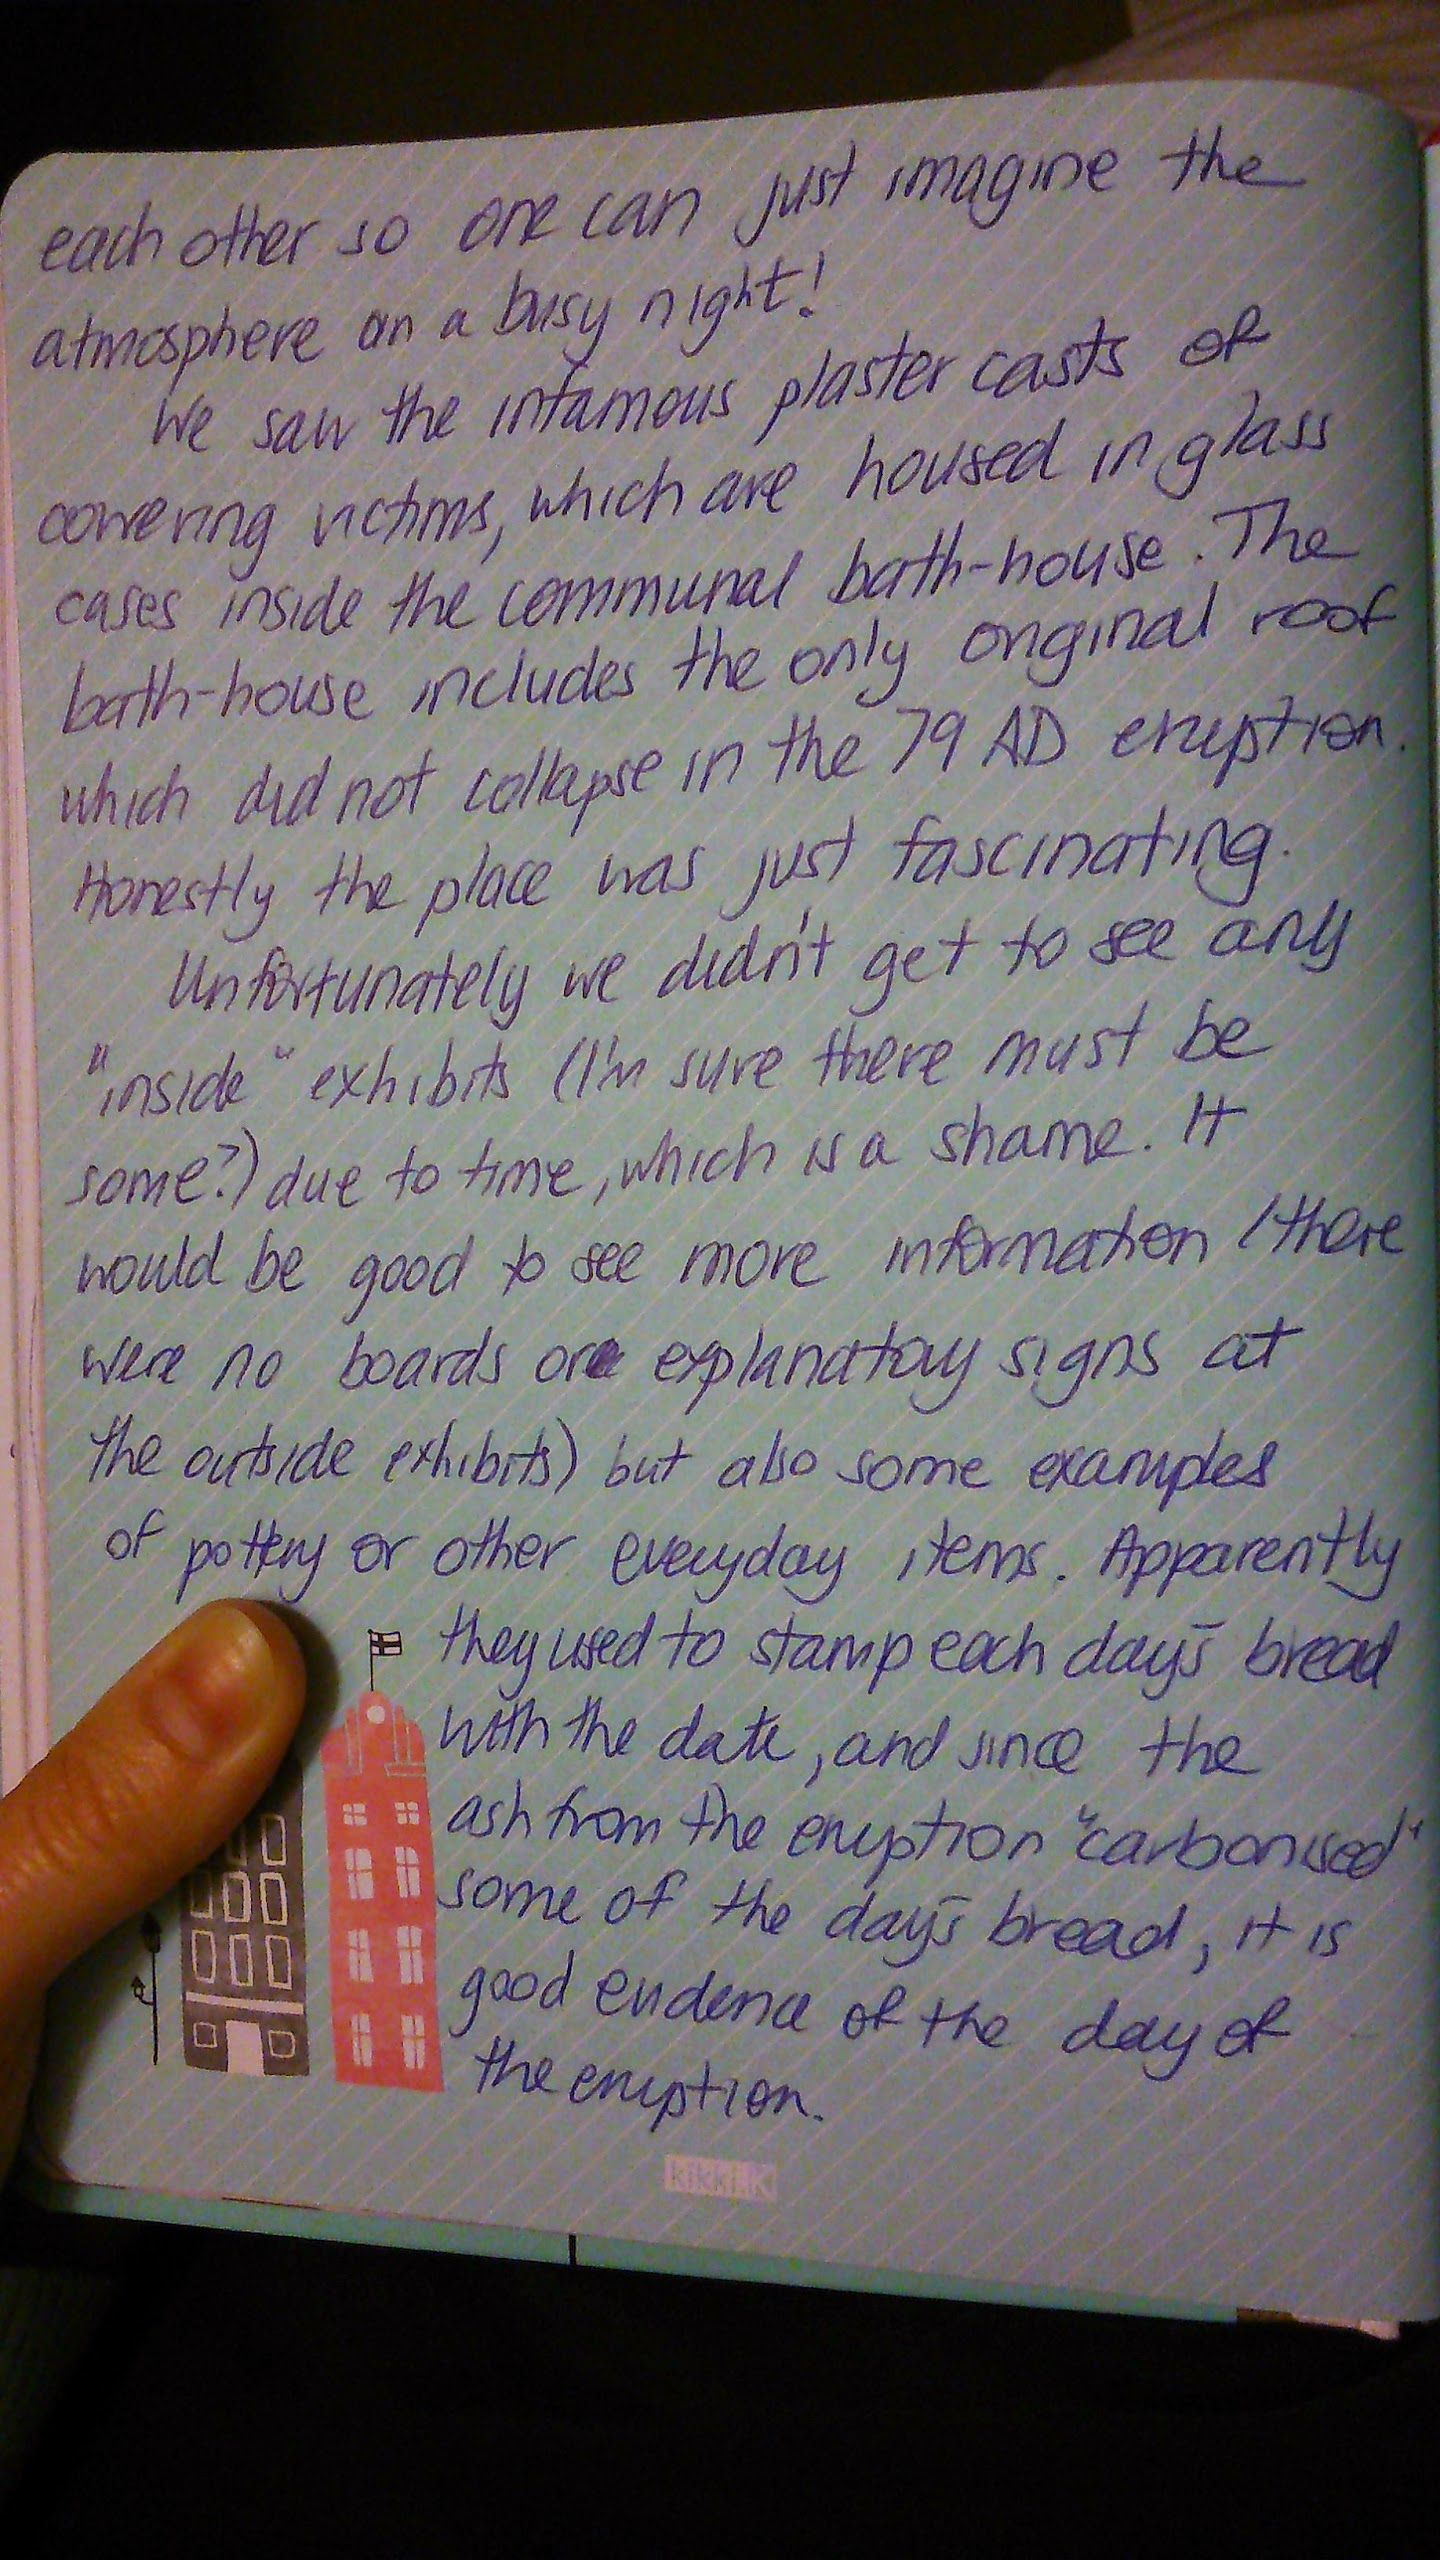 each other so one can just imagine the
atmosphere on a busy night!
We saw the infamous plaster casts of
cowering victims, which are housed in glass
cases inside the communal bath-house. The
bath-house includes the only original roof
which did not collapse in the 79 AD eruption.
Honestly the place was just fascinating.
Unfortunately we didn't get to see any
"inside" exhibits (I'm sure there must be
some?) due to time, which is a shame. It
would be good to see more information (there
were no boards or explanatory signs at
the outside exhibits) but also some examples
of pottery or other everyday items. Apparently
they used to stamp each day's bread
with the date, and since the
ash from the eruption "carbonised"
some of the day's bread, it is
good evidence of the day of
the eruption.
kikki.K